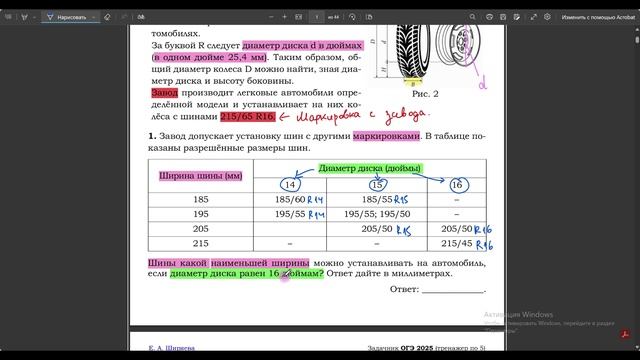 Нарисовать
1
из 44
Изменить с помощью Acrobat
томобилях.
За буквой R следует диаметр диска d в дюймах
(в одном дюйме 25,4 мм). Таким образом, об-
щий диаметр колеса D можно найти, зная диа-
метр диска и высоту боковины.
Завод производит легковые автомобили опре-
делённой модели и устанавливает на них ко-
лёса с шинами 215/65 R16. ← Маркировка с завода.
D
H
B
d
Рис. 2
1. Завод допускает установку шин с другими маркировками. В таблице по-
казаны разрешённые размеры шин.
Ширина шины (мм)
Диаметр диска (дюймы)
14 15 16
185 185/60 R14 185/55 R15 –
195 195/55 R14 195/55; 195/50 –
205 205/50 R15 205/50 R16
215 – – 215/45 R16
Шины какой наименьшей ширины можно устанавливать на автомобиль,
если диаметр диска равен 16 дюймам? Ответ дайте в миллиметрах.
Ответ: ____________.
Активация Windows
Чтобы активировать Windows, перейдите в раздел
"Параметры".
Е. А. Ширяева
Задачник ОГЭ 2025 (тренажер по 5)